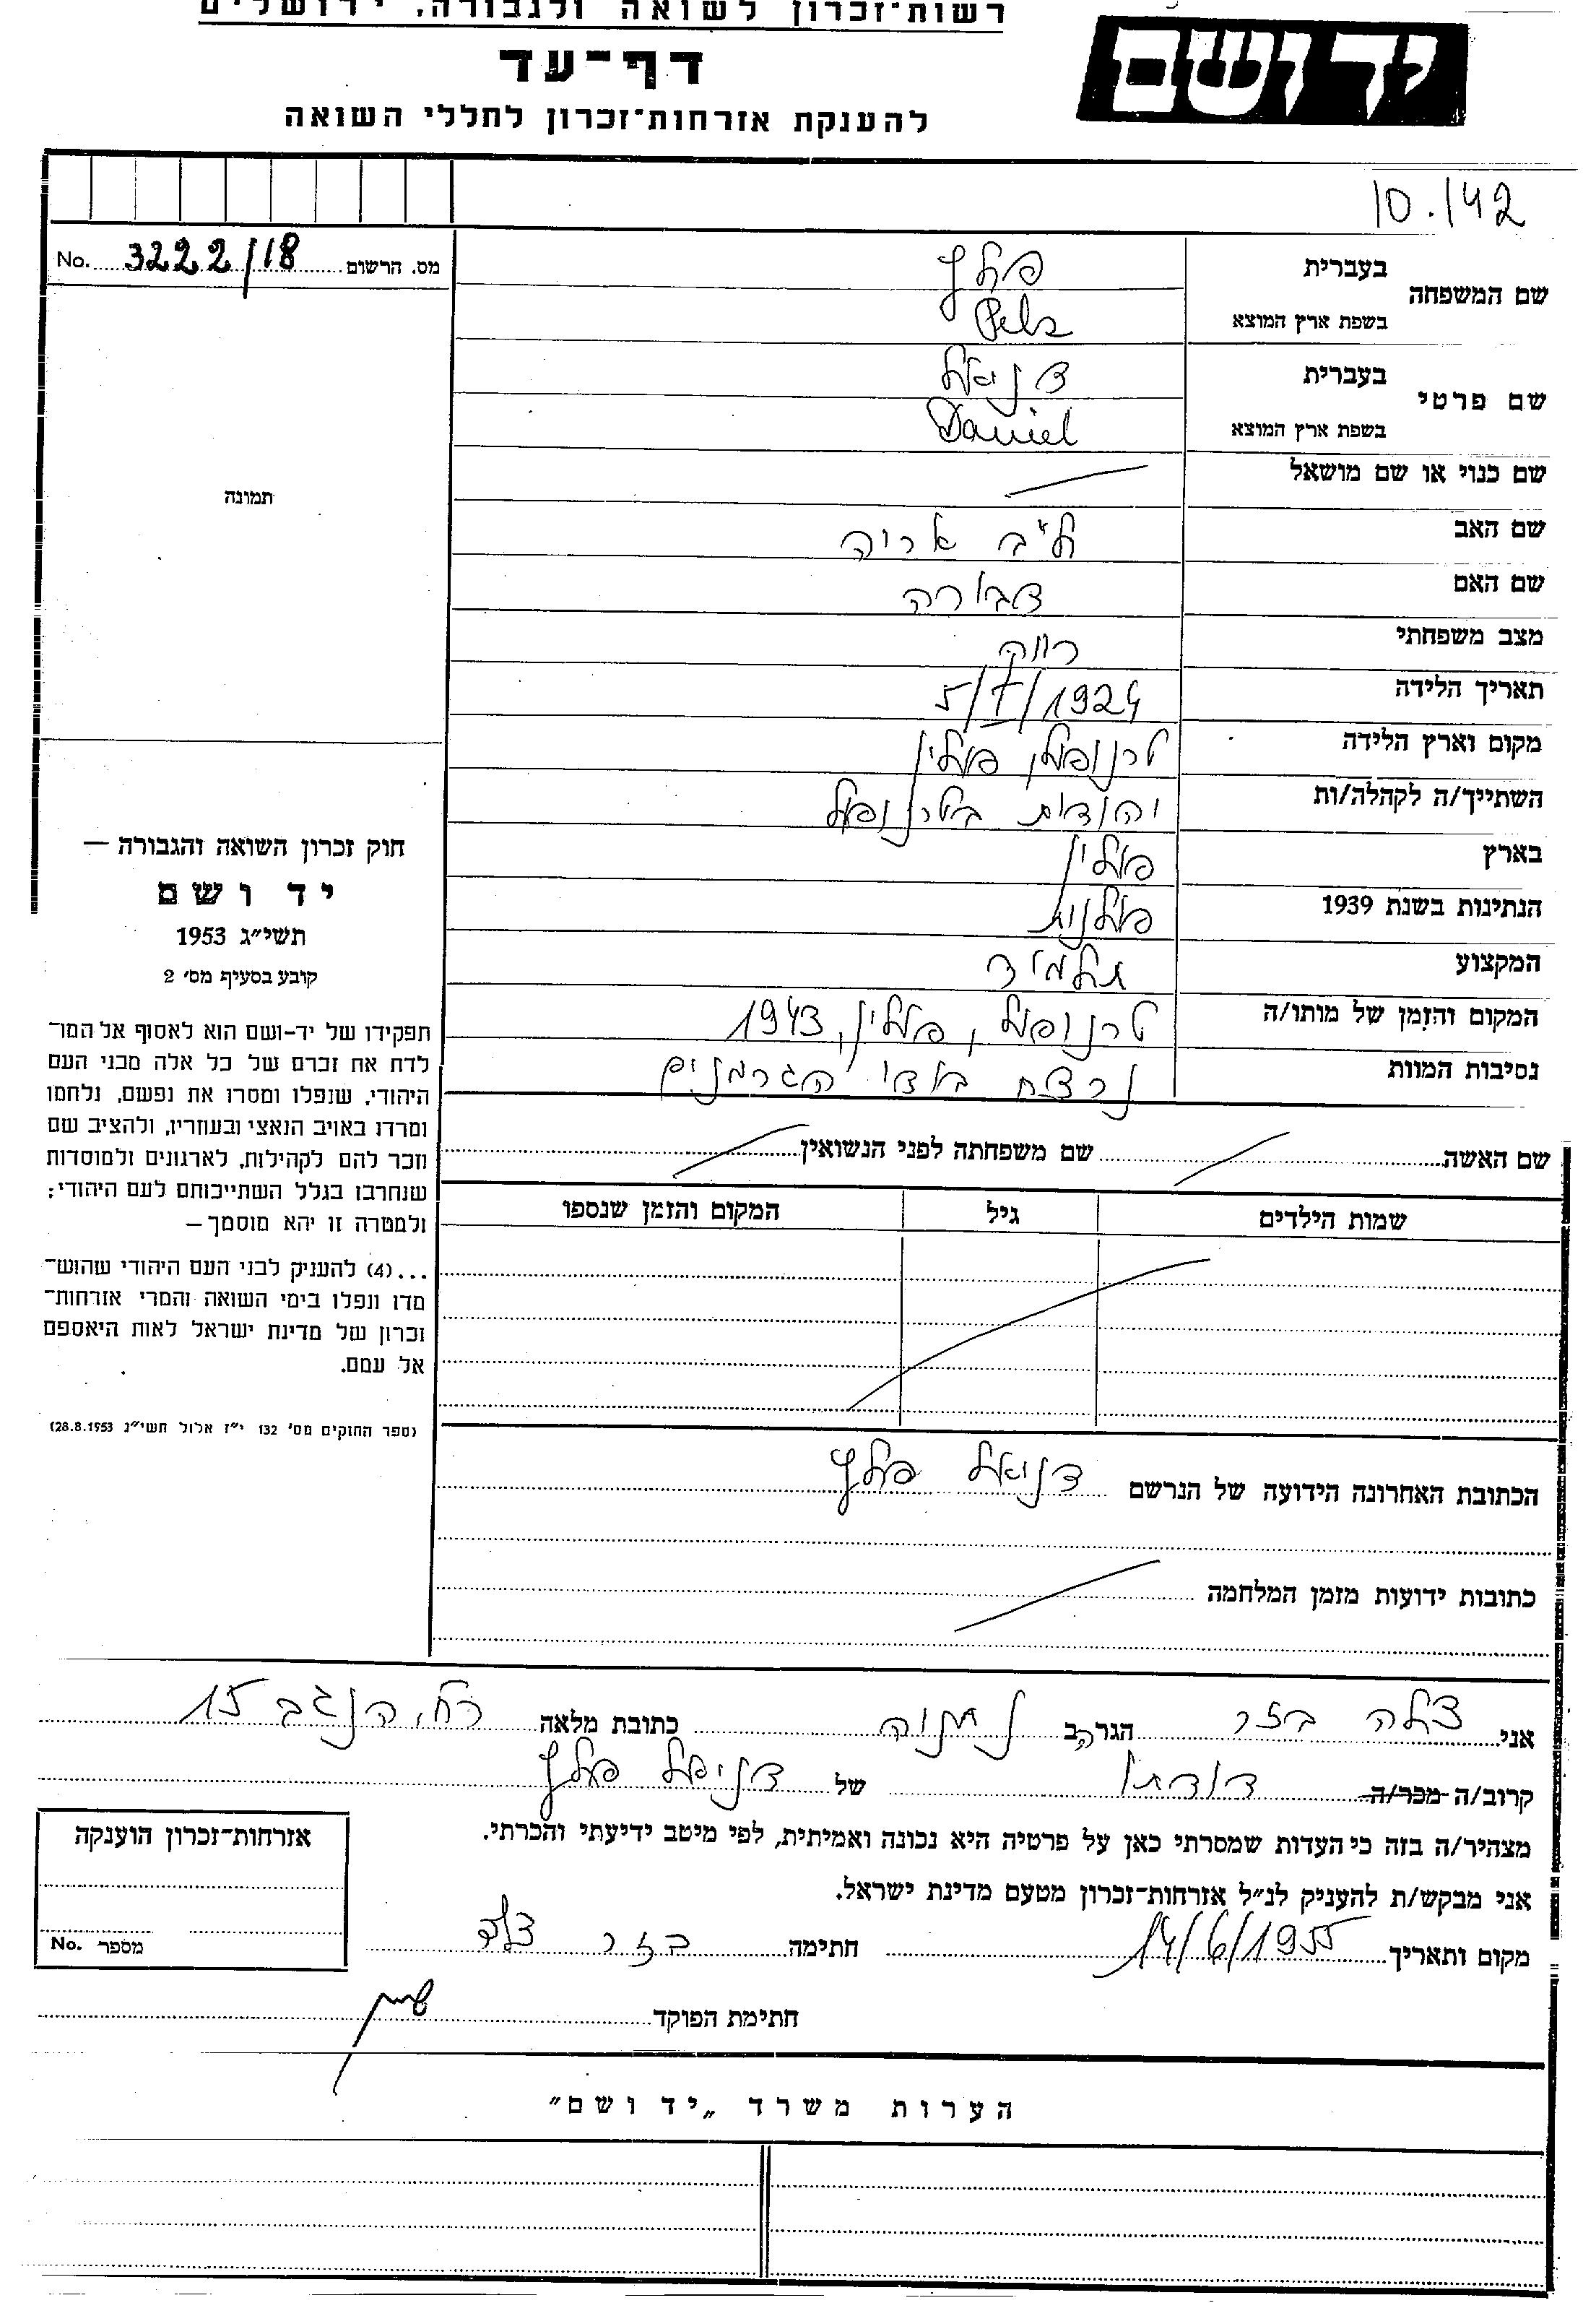 רשות־זכרון לשואה ולגבורה, ירושלים
יד ושם
דף־עד
להענקת אזרחות־זכרון לחללי השואה
10.142
מס. הרשום 3222/18 No.
שם המשפחה
בעברית פלץ
בשפת ארץ המוצא Pelz
שם פרטי
בעברית דניאל
בשפת ארץ המוצא Daniel
שם כנוי או שם מושאל
תמונה
שם האב לייב אריה
שם האם דבורה
מצב משפחתי רווק
תאריך הלידה 5/I/1924
מקום וארץ הלידה טרנופול, פולין
השתייך/ה לקהלה/ות יהודית בטרנופול
בארץ פולין
הנתינות בשנת 1939 פולנית
המקצוע תלמיד
המקום והזמן של מותו/ה טרנופול, פולין, 1943
נסיבות המוות נרצח בידי הגרמנים
חוק זכרון השואה והגבורה —
יד ושם
תשי״ג 1953
קובע בסעיף מס׳ 2
תפקידו של יד-ושם הוא לאסוף אל המו־
לדת את זכרם של כל אלה מבני העם
היהודי, שנפלו ומסרו את נפשם, נלחמו
ומרדו באויב הנאצי ובעוזריו, ולהציב שם
וזכר להם לקהילות, לארגונים ולמוסדות
שנחרבו בגלל השתייכותם לעם היהודי;
ולמטרה זו יהא מוסמך —
...(4) להעניק לבני העם היהודי שהוש־
מדו ונפלו בימי השואה והמרי אזרחות־
זכרון של מדינת ישראל לאות היאספם
אל עמם.
(ספר החוקים מס׳ 132 י״ז אלול תשי״ג 28.8.1953)
שם האשה שם משפחתה לפני הנשואין
שמות הילדים גיל המקום והזמן שנספו
הכתובת האחרונה הידועה של הנרשם דניאל פלץ
כתובות ידועות מזמן המלחמה
אני צלה בזר הגרה ב נתניה כתובת מלאה רח, הנגב 15
קרוב/ה מכר/ה דודתו של דניאל פלץ
מצהיר/ה בזה כי העדות שמסרתי כאן על פרטיה היא נכונה ואמיתית, לפי מיטב ידיעתי והכרתי.
אני מבקש/ת להעניק לנ״ל אזרחות־זכרון מטעם מדינת ישראל.
מקום ותאריך 14/6/1955 חתימה בזר צלה
אזרחות־זכרון הוענקה
מספר No.
חתימת הפוקד
הערות משרד „יד ושם״